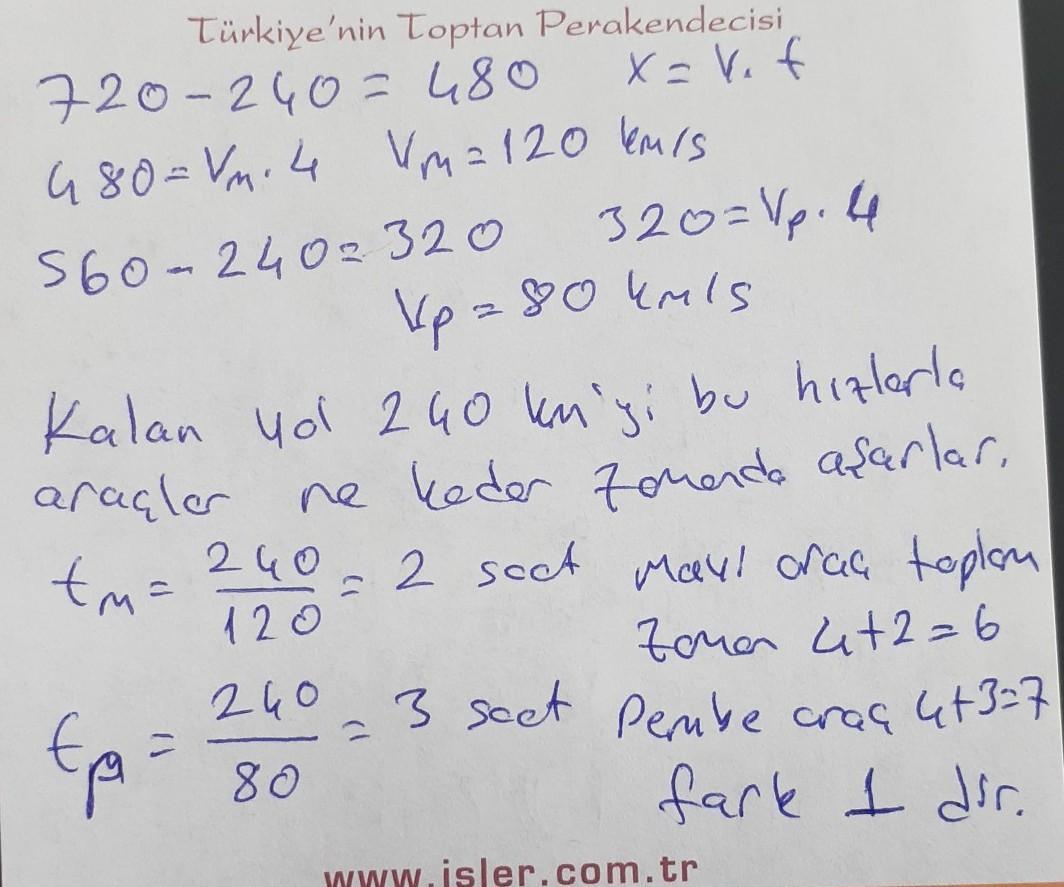 Türkiye'nin Toptan Perakendecisi
720-240=480 x=V.t
480=Vm.4 Vm=120 km/s
560-240=320 320=Vp.4
Vp=80 km/s
Kalan yol 240 km'yi bu hızlarla
araçlar ne kadar zamanda aşarlar.
tm=240/120=2 saat Mavi araç toplam
zaman 4+2=6
tp=240/80=3 saat Pembe araç 4+3=7
fark 1 dir.
www.isler.com.tr